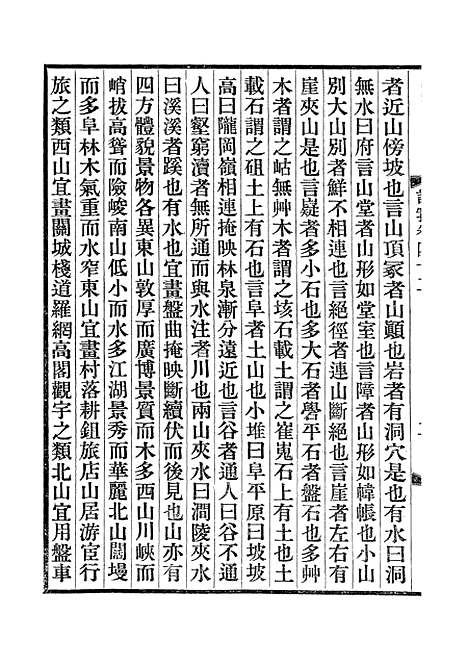 者近山傍坡也言山頂冢者山顚也岩者有洞穴是也有水曰洞
無水曰府言山堂者山形如堂室也言障者山形如幃帳也小山
別大山別者鮮不相連也言絕徑者連山斷絕也言崖者左右有
崖夾山是也言嶷者多小石也多大石者礐平石者盤石也多艸
木者謂之岵無艸木者謂之垓石載土謂之崔嵬石上有土也土
載石謂之砠土上有石也言阜者土山也小堆曰阜平原曰坡坡
高曰隴岡嶺相連掩映林泉漸分遠近也言谷者通人曰谷不通
人曰壑窮瀆者無所通而與水注者川也兩山夾水曰澗陵夾水
曰溪溪者蹊也有水也宜畫盤曲掩映斷續伏而後見也山亦有
四方體貌景物各異東山敦厚而廣博景質而木多西山川峽而
峭拔高聳而險峻南山低小而水多江湖景秀而華麗北山闊墁
而多阜林木氣重而水窄東山宜畫村落耕鉏旅店山居游宦行
旅之類西山宜畫關城棧道羅網高閣觀宇之類北山宜用盤車